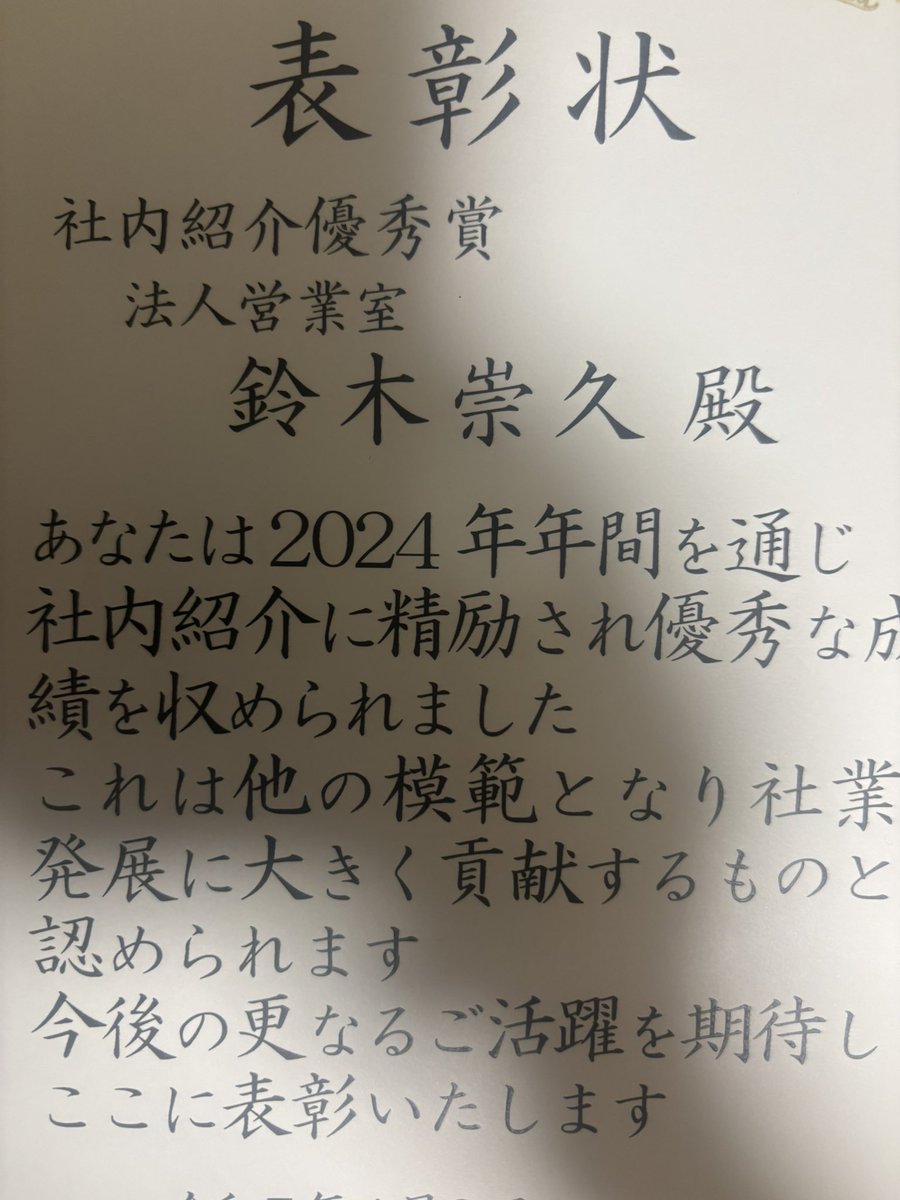 表彰状
社内紹介優秀賞
法人営業室
鈴木崇久 殿
あなたは2024年年間を通じ
社内紹介に精励され優秀な成
績を収められました
これは他の模範となり社業
発展に大きく貢献するものと
認められます
今後の更なるご活躍を期待し
ここに表彰いたします